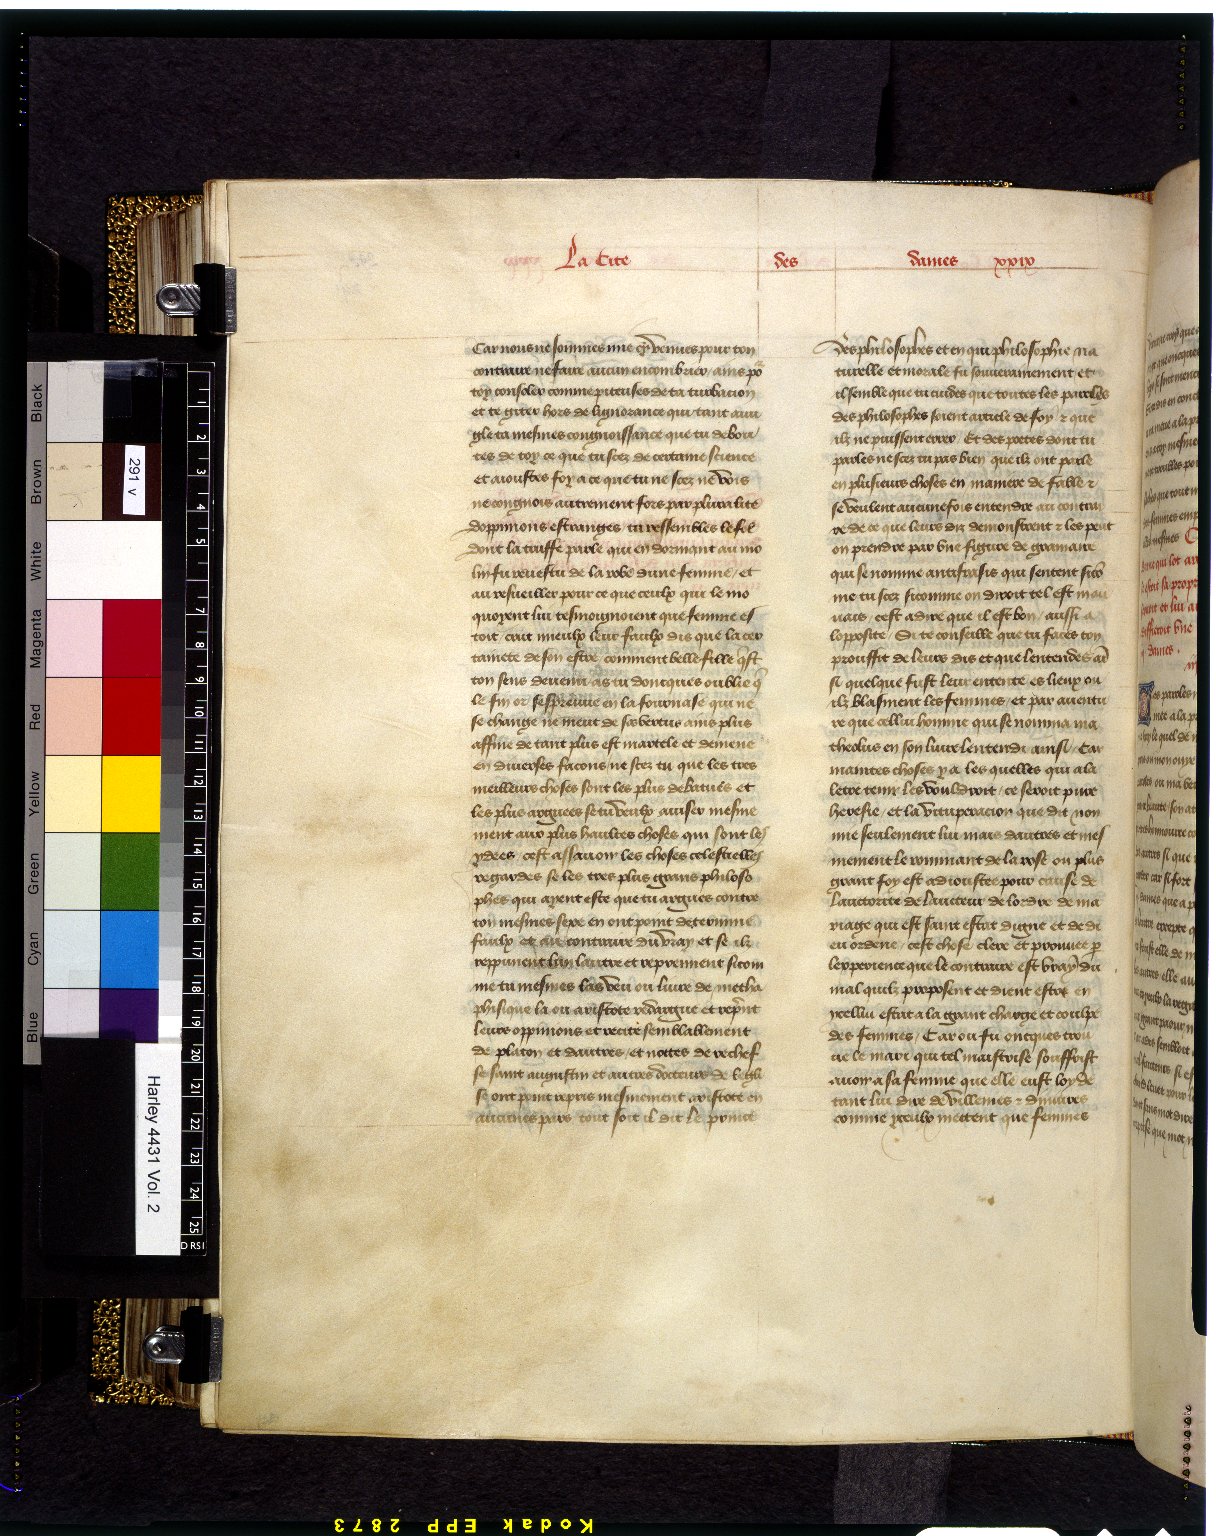 La Cite des dames xxix
Car nous ne sommes mie cy venues pour ton
contraire ne faire aucun encombrier / ains po᷑
toy consoler comme piteuses de ta turbacion
et te giter hors de lignorance qui tant aueu
gle ta mesmes congnoissance que tu debou
tes de toy ce que tu scez de certaine science
et aioustes foy a ce que tu ne scez ne vois
ne congnois autrement fors par pluralite
doppinions estranges tu ressembles le fol
dont la truffe parle qui en dormant au mo
lin fu reuestu de la robe dune femme / et
au resueillier pour ce que ceulx qui le mo
quoyent lui tesmoignoient que femme es
toit crut mieulx leur faulx dis que la cer
tainete de son estre comment belle fille quest
ton sens deuenu as tu doncques oublie que
le fin or sespreuue en la fournaise qui ne
se change ne meut de ses vertus ains plus
affine de tant plus est martele et demene
en diuerses facons ne scez tu que les tres
meilleurs choses sont les plus debatues et
les plus arguees se tu veulx auiser mesme
ment aux plus haultes choses qui sont les
ydees cest assauoir les choses celestielles
regardes se les tres plus grans philoso
phes qui ayent este que tu argues contre
ton mesmes sexe en ont point determine
faulx et au contraire du vray et se ilz
reppunent lun lautre et reprennent si com
me tu mesmes las veu ou liure de metha
phisique la ou aristote redargue et reprent
leurs oppinions et recite semblablement
de platon et dautres / et nottes de rechef
se saint augustin et autres docteurs de leglise
se ont point repris mesmement aristote en
aucunes pars tout soit il dit le prince
des philosophes et en qui philosophie na
turelle et morale fu souuerainement et
il semble que tu cuides que toutes les paroles
des philosophes soient article de foy et que
ilz ne puissent errer / Et des poetes dont tu
parles ne scez tu pas bien que ilz ont parle
en plusieurs choses en maniere de fable et
se veulent aucunefois entendre au contrai
re de ce que leurs diz demonstrent et les peut
on prendre par vne figure de gramaire
qui se nomme antifrasis qui sentent si co᷑
me tu scez si comme on diroit tel est mau
uais / cest a dire que il est bon / aussi a
lopposite / Si te conseille que tu faces ton
prouffit de leurs dis et que lentendes ain
si quelque fust leur entente es lieux ou
ilz blasment les femmes / et par auentu
re que cellui homme qui se nomma ma
theolus en son liure lentendi ainsi / Car
maintes choses y a les quelles qui a la
letre tenir les vouldroit / ce seroit pure
heresie / et la vituperacion que dit non
mie seulement lui mais dautres et mes
mement le rommant de la rose ou plus
grant foy est adioustee pour cause de
lauctorite de lauteur de lordre de ma
riage qui est saint estat digne et de di
eu ordene / cest chose clere et prouuee p
lexperience que le contraire est vray du
mal quilz proposent et dient estre en
ycellui estat a la grant charge et coulpe
des femmes / Car ou fu oncques trou
ue le mari qui tel maistrise souffrist
auoir a sa femme que elle eust loy de
tant lui dire de villenies et diniures
comme yceulx mettent que femmes
Black
Brown
White
Magenta
Red
Yellow
Green
Cyan
Blue
291 v
Harley 4431 Vol. 2
1
2
3
4
5
7
8
9
10
11
12
13
14
15
16
17
18
19
20
21
22
23
24
25
Kodak EPP 2873